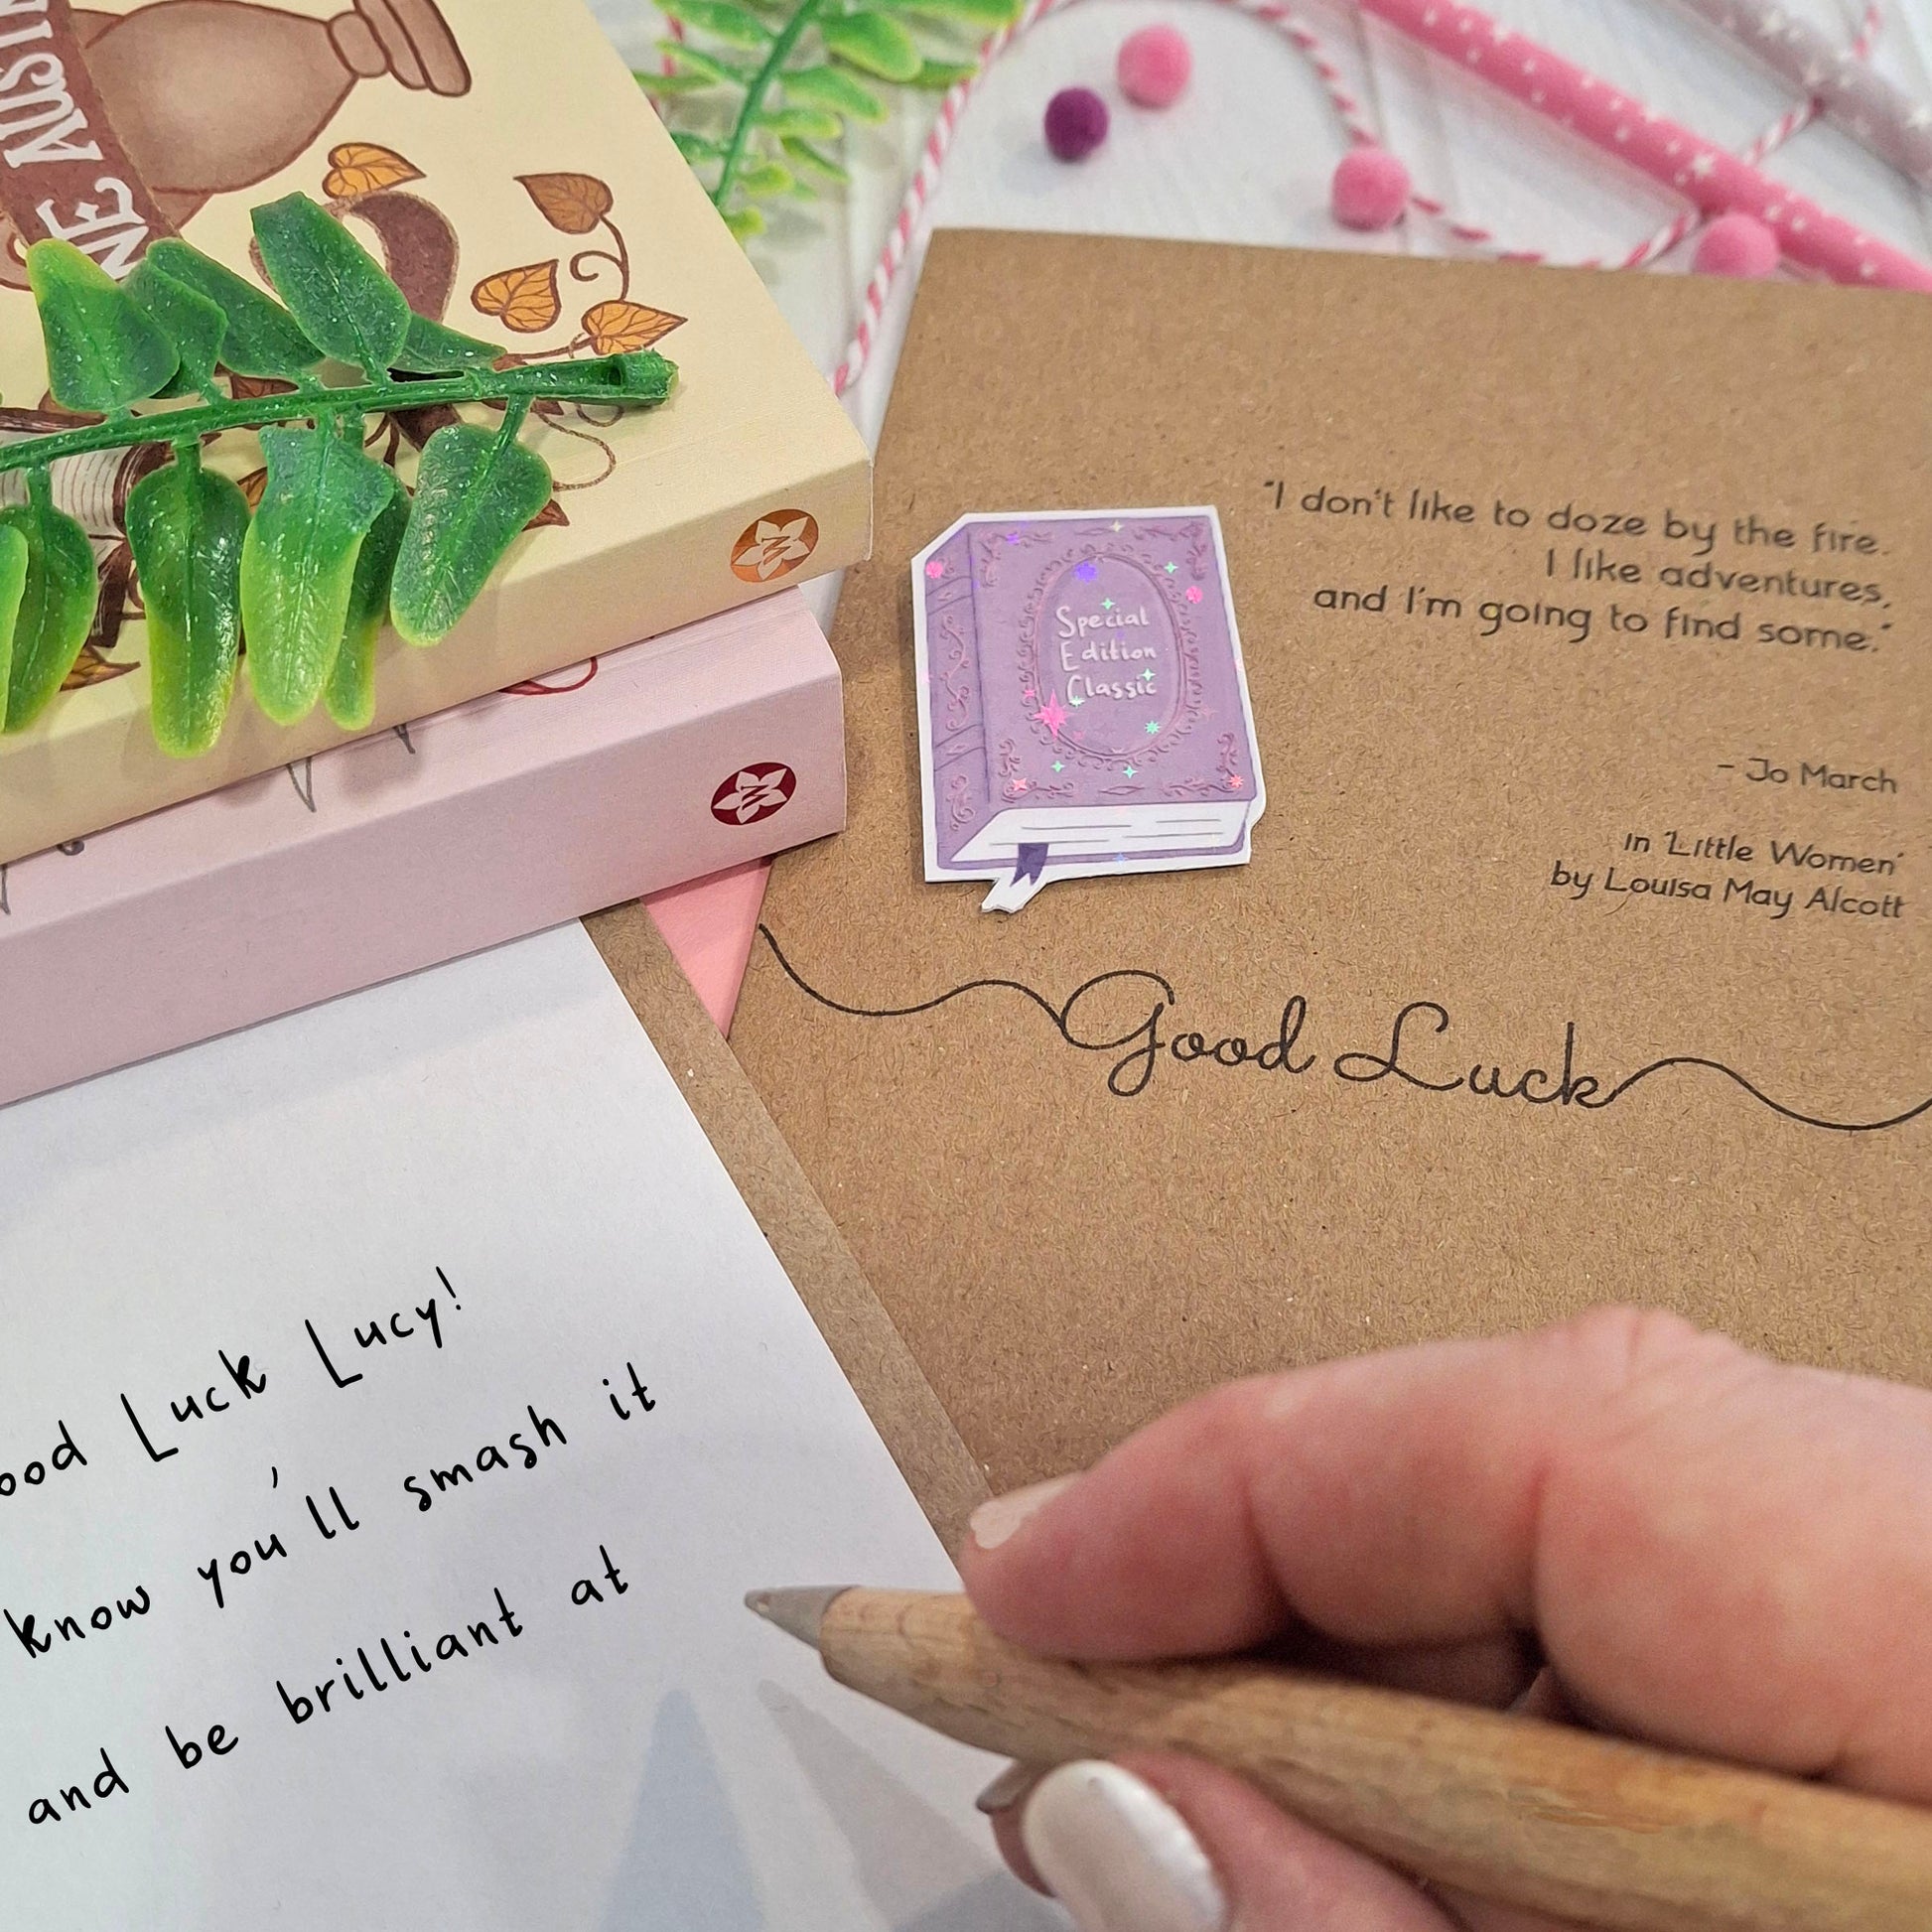 AUSTE
"I don't like to doze by the fire.
I like adventures,
and I'm going to find some."
- Jo March
in 'Little Women'
by Louisa May Alcott
Special
Edition
Classic
Good Luck
ood Luck Lucy!
know you'll smash it
and be brilliant at